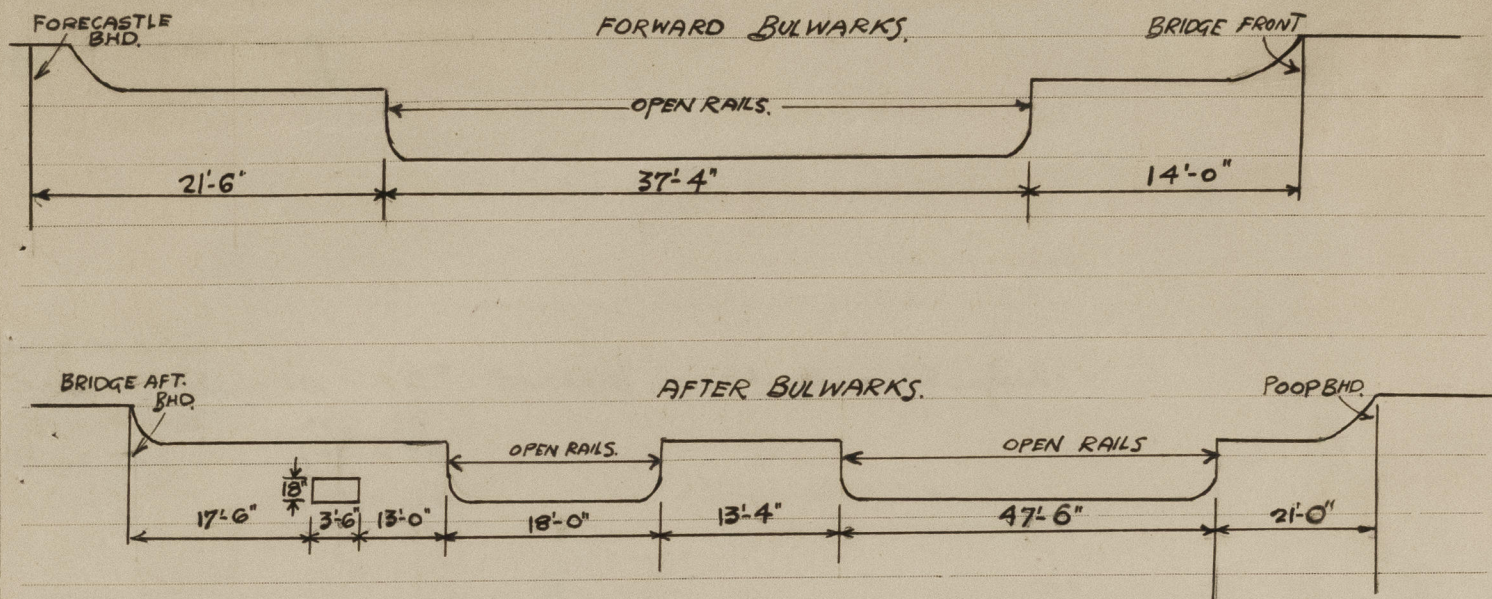 FORECASTLE
BHD.
FORWARD BULWARKS.
BRIDGE FRONT
OPEN RAILS.
21'-6"
37'-4"
14'-0"
BRIDGE AFT.
BHD.
AFTER BULWARKS.
POOP BHD.
OPEN RAILS.
OPEN RAILS
18"
17'-6"
3'-6"
13'-0"
18'-0"
13'-4"
47'-6"
21'-0"